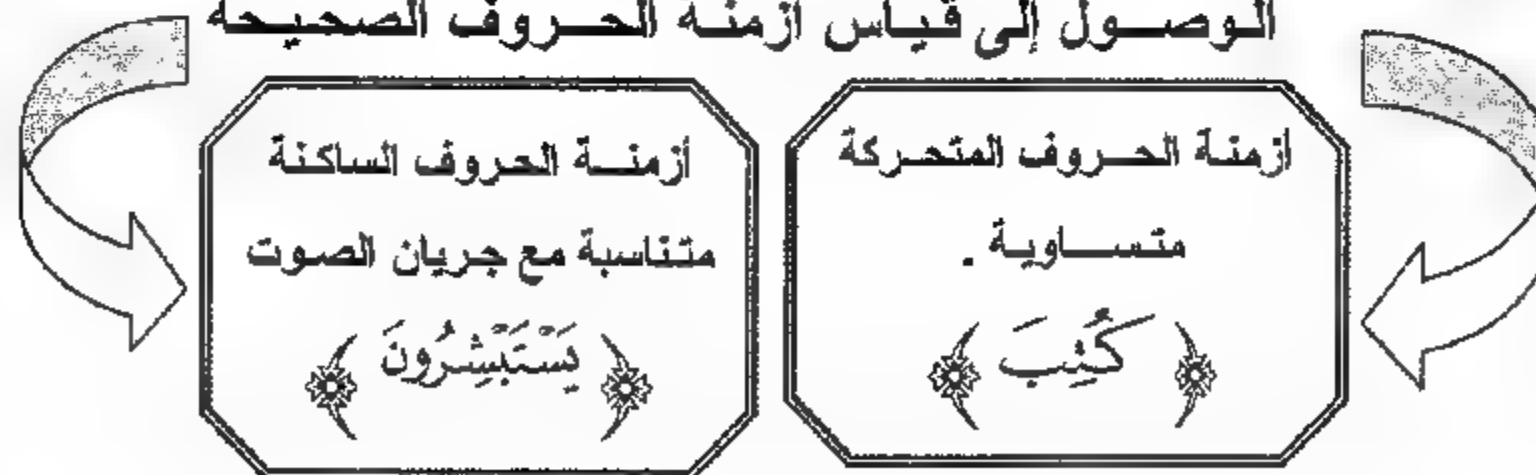 الوصول إلى قياس أزمنة الحروف الصحيحة
أزمنة الحروف المتحركة
متساوية .
﴿ كُتِبَ ﴾
أزمنة الحروف الساكنة
متناسبة مع جريان الصوت
﴿ يَسْتَبْشِرُونَ ﴾